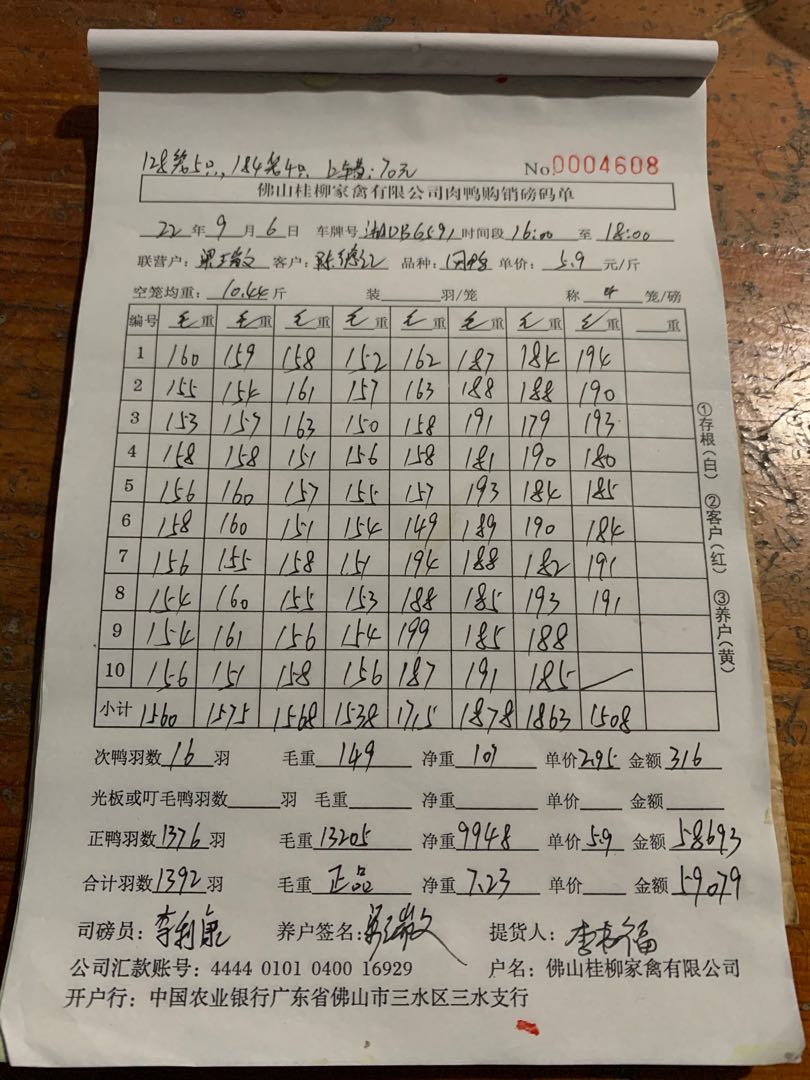 128笼5只, 184笼4只 上车费:70元 No.0004608
佛山桂柳家禽有限公司肉鸭购销磅码单
22年9月6日 车牌号 DB6591 时间段16:00至18:00
联营户: 客户: 品种: 单价:5.9元/斤
空笼均重:10.44斤 装 羽/笼 称4笼/磅
编号 毛重 毛重 毛重 毛重 毛重 毛重 毛重 毛重 重
1 160 159 158 152 162 187 184 194
2 155 154 161 157 163 188 188 190
3 153 157 163 150 158 191 179 193
4 158 158 151 156 158 181 190 180
5 156 160 157 155 157 193 184 185
6 158 160 151 154 149 189 190 184
7 156 155 158 151 194 188 182 191
8 154 160 155 153 188 185 193 191
9 154 161 156 154 199 185 188
10 156 151 158 156 187 191 185
小计 1560 1575 1568 1538 1715 1878 1863 1508
次鸭羽数16羽 毛重149 净重107 单价2.95 金额316
光板或叮毛鸭羽数 羽 毛重 净重 单价 金额
正鸭羽数1376羽 毛重13205 净重9948 单价5.9 金额58693
合计羽数1392羽 毛重正品 净重7.23 单价 金额59079
司磅员:李利康 养户签名: 提货人:
公司汇款账号:4444 0101 0400 16929 户名:佛山桂柳家禽有限公司
开户行:中国农业银行广东省佛山市三水区三水支行
①存根(白) ②客户(红) ③养户(黄)